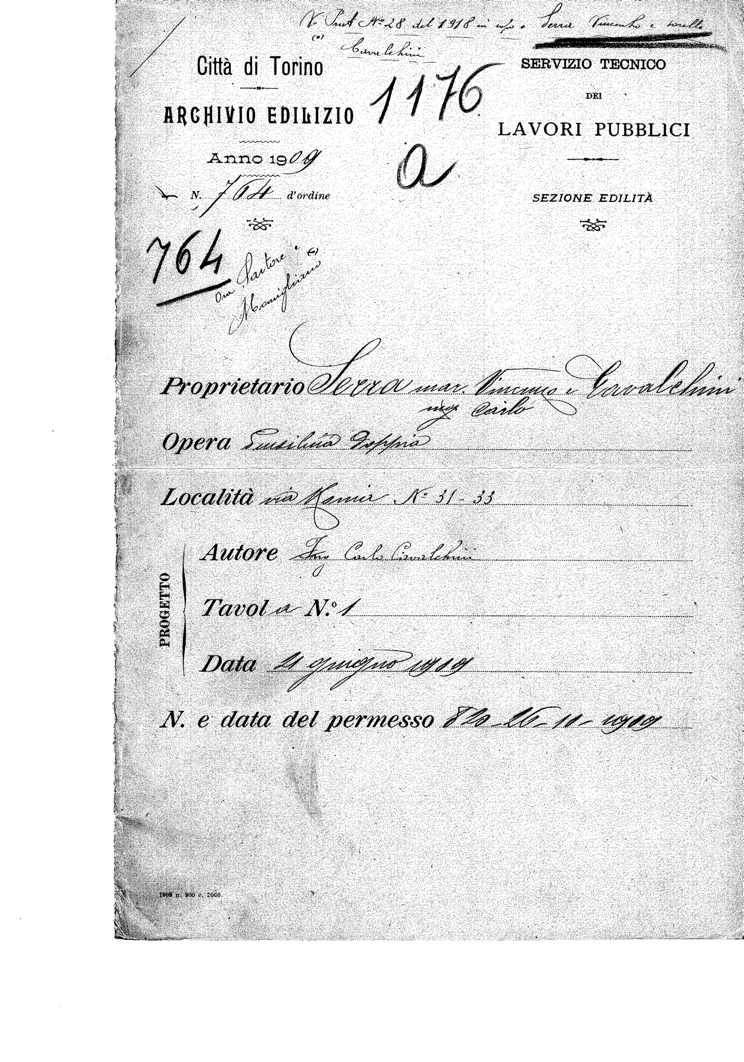 V. Prat. N° 28 del 1918 in capo a Serra Vincenzo e sorella
(°) Cavalchini
Città di Torino
ARCHIVIO EDILIZIO
Anno 1909
N. 764 d'ordine
764
Ora Sartore e (°)
Momigliano
1176
a
SERVIZIO TECNICO
DEI
LAVORI PUBBLICI
SEZIONE EDILITÀ
Proprietario Serra mar. Vincenzo e Cavalchini
ing. Carlo
Opera doppia
Località via N° 31-33
PROGETTO
Autore Ing Carlo Cavalchini
Tavola N.° 1
Data 21 giugno 1909
N. e data del permesso 820-26-11-1909
1909 n. 900 c. 2000.